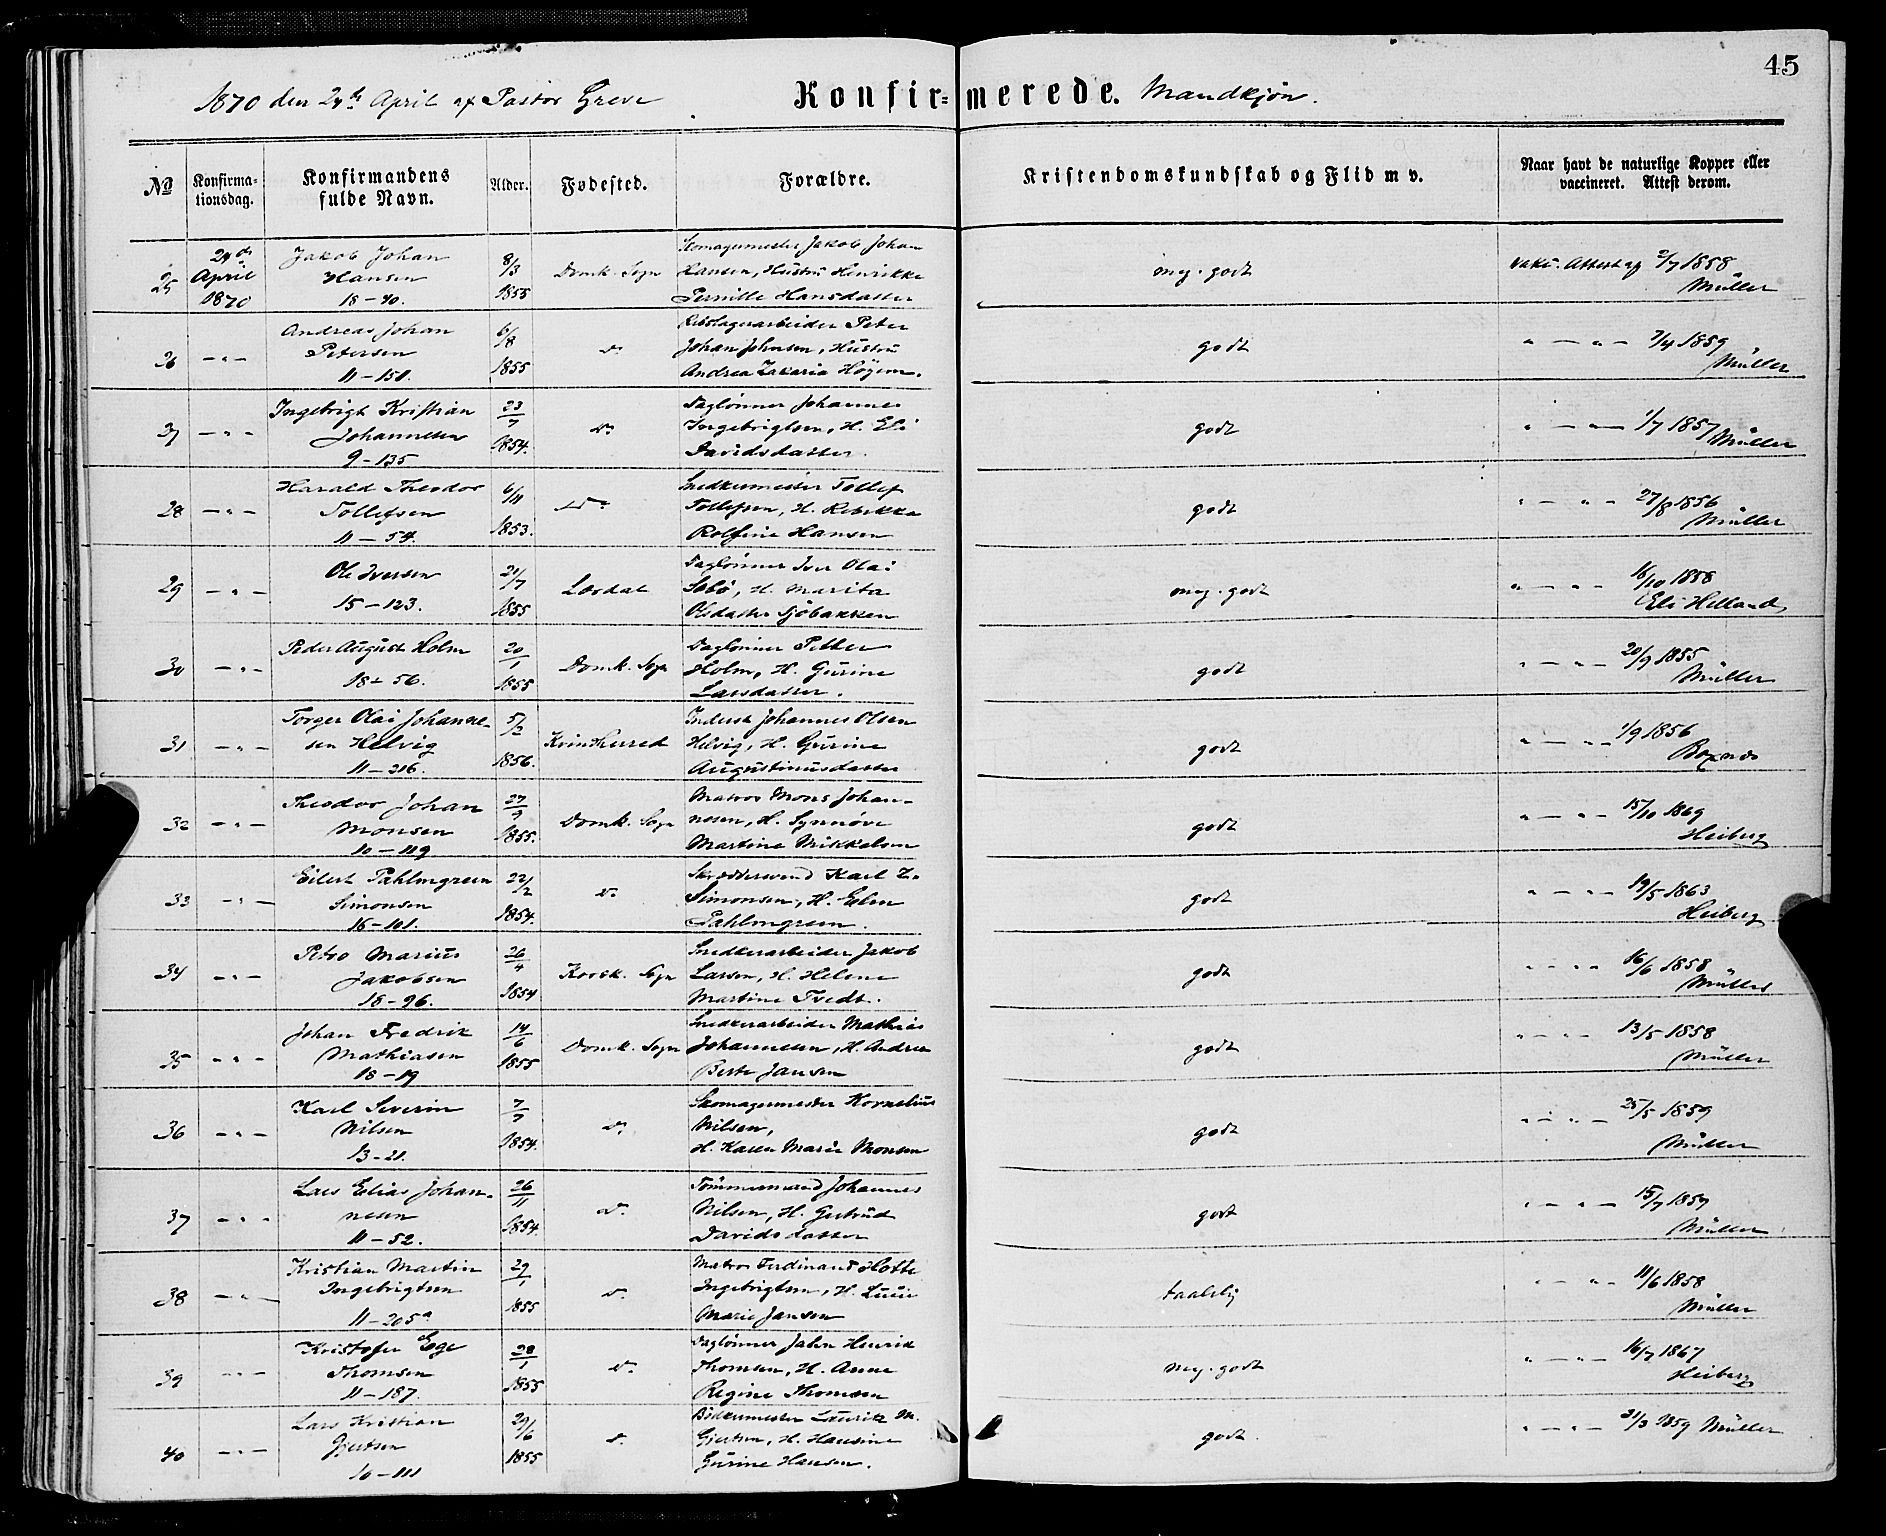 45
1870 den 24de April af Pastor Greve Konfir= merede. Mandkjøn.
No Konfirma- tionsdag. Konfirmandens fulde Navn. Alder. Fødested. Forældre. Kristendomskundskab og Flid m v. Naar havt de naturlige Kopper eller vaccineret. Attest derom.
25 24de April 1870 Jakob Johan Hansen 18-40. 8/3 1855 Domk. Sogn Skomagermester Jakob Johan Hansen, Hustru Henrikke Pernille Hansdatter meg. godt Vakc. Attest af 2/7 1858 Müller
26 - " - Andreas Johan Petersen 11-151. 6/8 1855 do Rebslagerarbeider Peter Johan Johnsen, Hustru Andrea Zakaria godt " - " - 7/4 1859 Müller
27 - " - Ingebrigt Kristian Johannesen 9-135 23/7 1854. do Daglönner Johannes Ingebrigtsen, H. Eli Davidsdatter. godt " - " - 1/7 1857 Müller
28 - " - Harald Theodor Tollefsen 11-54. 6/11 1853. do Snedkermester Tollef Tollefsen, H. Rebekka Rolfine Hansen godt " - " - 27/8 1856 Müller
29 - " - Ole Iversen 15-123. 21/7 1855 Lærdal Daglönner Iver Olai H. Marita Olsdatter Sjöbakken meg. godt " - " - 16/10 1858 Eli Helland
30 - " - Peder August Holm 18-56. 20/1 1855 Domk. Sogn Daglönner Petter Holm, H. Gurine Larsdatter. godt " - " - 20/9 1855 Müller
31 - " - Torger Olai Johanne- sen Helvig 11-216. 5/2 1856. Kvindherred Inderst Johannes Olsen Helvig, H. Gurine Augustinusdatter godt " - " - 1/9 1856
32 - " - Theodor Johan Monsen 10-119 1855. Domk. Sogn Matros Mons Johan- nesen, H. Synnöve Martine Mikkelsen godt " - " - 15/10 1869 Heiberg
33 - " - Eilert Pahlmgreen Simonsen 16-101. 22/2 1854. do Skrædersvend Karl Z. Simonsen, H. Elen Pahlmgreen. godt " - " - 19/5 1863 Heiberg
34 - " - Petro Marius Jakobsen 18-96. 26/4 1854 Korsk. Sogn Snedkerarbeider Jakob Larsen, H. Helene Martine Tvedt. godt " - " - 16/6 1858 Müller
35 - " - Johan Fredrik Mathiasen 18-19 14/6 1855 Domk. Sogn Snedkerarbeider Mathias Johannesen, H. Andrea Berte Jansen godt " - " - 13/5 1858 Müller
36 - " - Karl Severin Nilsen 13-21. 1854. do Skomagermester Kornelius Nilsen, H. Karen Marie Monsen godt " - " - 25/5 1859 Müller
37 - " - Lars Elias Johan- nesen 11-52. 26/11 1854. do Tömmermand Johannes Nilsen, H. Gertrud Davidsdatter godt " - " - 15/7 1857 Müller
38 - " - Kristian Martin Ingebrigtsen 11-205a 29/1 1855 do Matros Ferdinand Holte Ingebrigtsen, H. Lucie Marie Jansen taalelig " - " - 11/6 1858 Müller
39 - " - Kristofer Ege Thomsen 11-187. 28/1 1855 do Daglönner Jahn Henrik Thomsen, H. Anne Regine Thomsen meg. godt " - " - 16/7 1867 Heiberg
40 - " - Lars Kristian Gjertsen 10-111 29/6 1855 do Bödkermester Lauritz M. Gjertsen, H. Hansine Gurine Hansen. godt. " - " - 31/3 1859 Müller